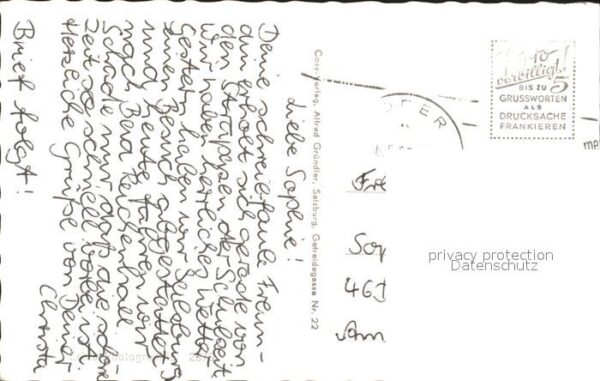 Liebe Sophie!
Deine schreibfaule Freun-
din erholt sich gerade von
den Strapazen der Schulzeit.
Wir haben herrliches Wetter.
Gestern haben wir Salzburg
einen Besuch abgestattet
und heute fahren wir
nach Bad Reichenhall.
Schade nur, daß die schöne
Zeit so schnell vorbei ist.
Herzliche Grüße von Deiner
Christa
Brief folgt!
Cosy-Verlag, Alfred Gründler, Salzburg, Getreidegasse Nr. 22
verbilligt!
BIS ZU 5
GRUSSWORTEN
ALS
DRUCKSACHE
FRANKIEREN
Sop
privacy protection
Datenschutz